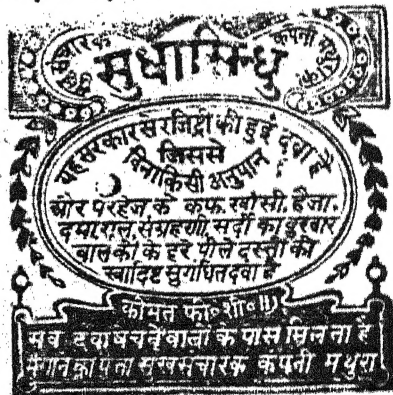 सुखसंचारक
कंपनी मथुरा का
सुधासिन्धु
यह सरकार से रजिष्ट्री की हुई दवा है
जिससे
बिना किसी अनुपान
और परहेज के कफ, खाँसी, हैजा,
दमा, शूल, संग्रहणी, सर्दी का बुखार
बालकों के हरे पीले दस्तों की
स्वादिष्ट सुगंधित दवा है
कीमत फी॰ शी॰ ॥)
सब दवा बेचने वालों के पास मिलता है
मंगाने का पता सुखसंचारक कंपनी मथुरा